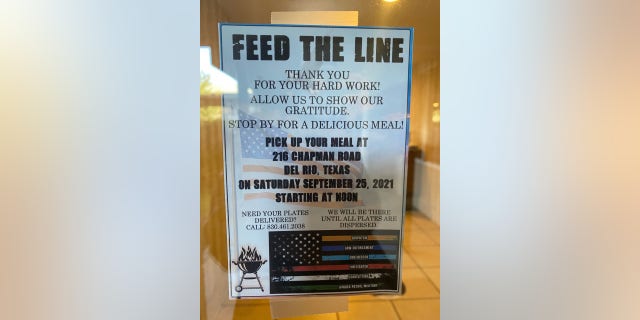 FEED THE LINE
THANK YOU
FOR YOUR HARD WORK!
ALLOW US TO SHOW OUR
GRATITUDE.
STOP BY FOR A DELICIOUS MEAL!
PICK UP YOUR MEAL AT
216 CHAPMAN ROAD
DEL RIO, TEXAS
ON SATURDAY SEPTEMBER 25, 2021
STARTING AT NOON
NEED YOUR PLATES
DELIVERED?
CALL: 830.461.2038
WE WILL BE THERE
UNTIL ALL PLATES ARE
DISPERSED
DISPATCH
LAW ENFORCEMENT
FIREFIGHTER
CORRECTIONS
BORDER PATROL/MILITARY